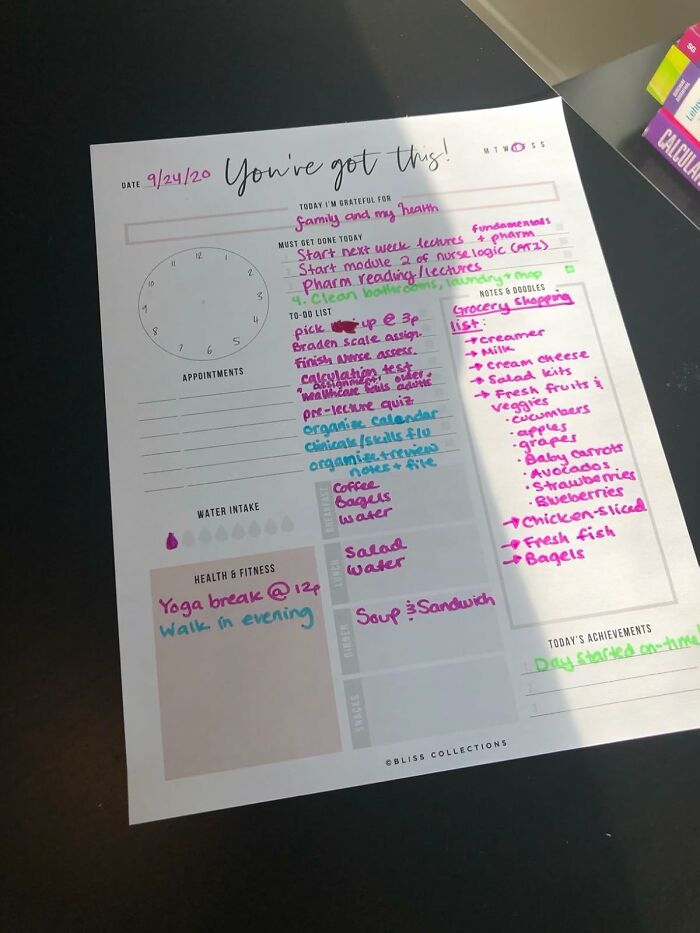 DATE 9/24/20 You've got this! M T W T F S S
TODAY I'M GRATEFUL FOR
family and my health
MUST GET DONE TODAY
1 Start next week lectures fundamentals + pharm
2 Start module 2 of nurselogic (ATI)
3 Pharm reading/lectures
4. Clean bathrooms, laundry + mop
12
1
2
3
4
5
6
7
8
9
10
11
APPOINTMENTS
TO-DO LIST
pick up @ 3p
Braden scale assign.
Finish Nurse assess.
calculation test
"assignment" older +
healthcare adults
pre-lecture quiz
organize calendar
clinicals/skills f/u
organize + review
notes + file
NOTES & DOODLES
Grocery shopping
list:
→ creamer
→ Milk
→ cream cheese
→ Salad kits
→ Fresh fruits &
veggies
· cucumbers
· apples
· grapes
· Baby carrots
· Avocados
· Strawberries
· Blueberries
→ Chicken-sliced
→ Fresh fish
→ Bagels
WATER INTAKE
HEALTH & FITNESS
Yoga break @ 12p
Walk in evening
BREAKFAST
Coffee
Bagels
Water
LUNCH
Salad
Water
DINNER
Soup & Sandwich
SNACKS
TODAY'S ACHIEVEMENTS
1 Day started on-time!
2
3
©BLISS COLLECTIONS
SG
CALCULA